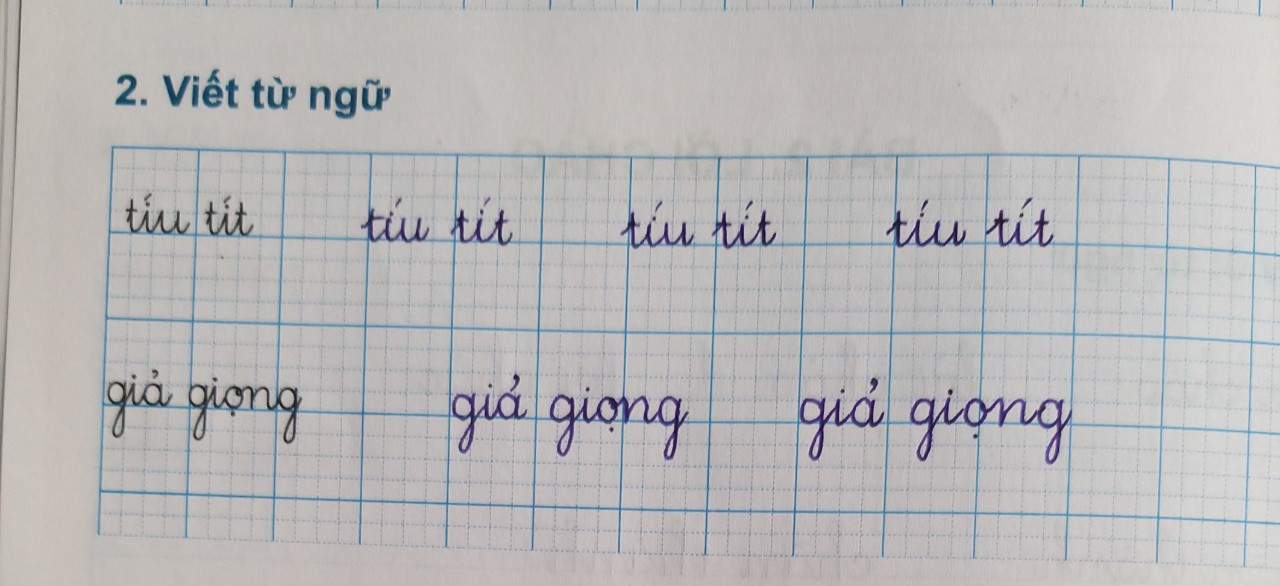 2. Viết từ ngữ
tíu tít tíu tít tíu tít tíu tít
giả giọng giả giọng giả giọng